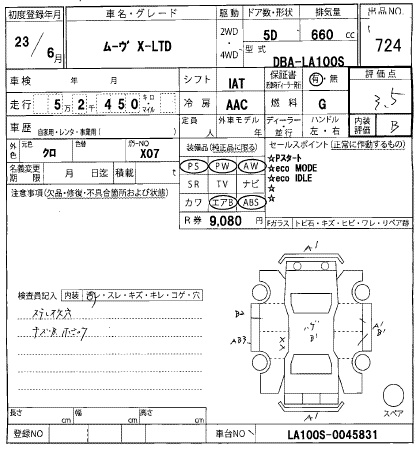 初度登録年月 車名・グレード 駆動 ドア数・形状 排気量 出品NO
23/6月 ムーヴ X-LTD 2WD・4WD 5D 660 cc 724
型式 DBA-LA100S
車検 年 月 シフト IAT 保証書 有・無 評価点
走行 5万2千450キロ・マイル 冷房 AAC 燃料 G 3.5
車歴 自家用・レンタ・事業用( ) 定員 人 外車モデル 年 ディーラー・並行 ハンドル 左・右 内装評価 B
外色 元色 クロ 色替 カラーNO X07
装備品(純正品に限る) セールスポイント(正常に作動するもの)
名義変更期限 月 日迄 積載 t
PS PW AW
SR TV ナビ
カワ エアB ABS
☆Pスタート
☆eco MODE
☆eco IDLE
☆
☆
注意事項(欠品・修復・不具合箇所および状態)
R券 9,080 円
Fガラス トビ石・キズ・ヒビ・ワレ・リペア跡
検査員記入 内装 汚レ・スレ・キズ・キレ・コゲ・穴
A1
B2
A1
B1
B1
A1
スペア
長さ cm 幅 cm 高さ cm
登録NO 車台NO LA100S-0045831